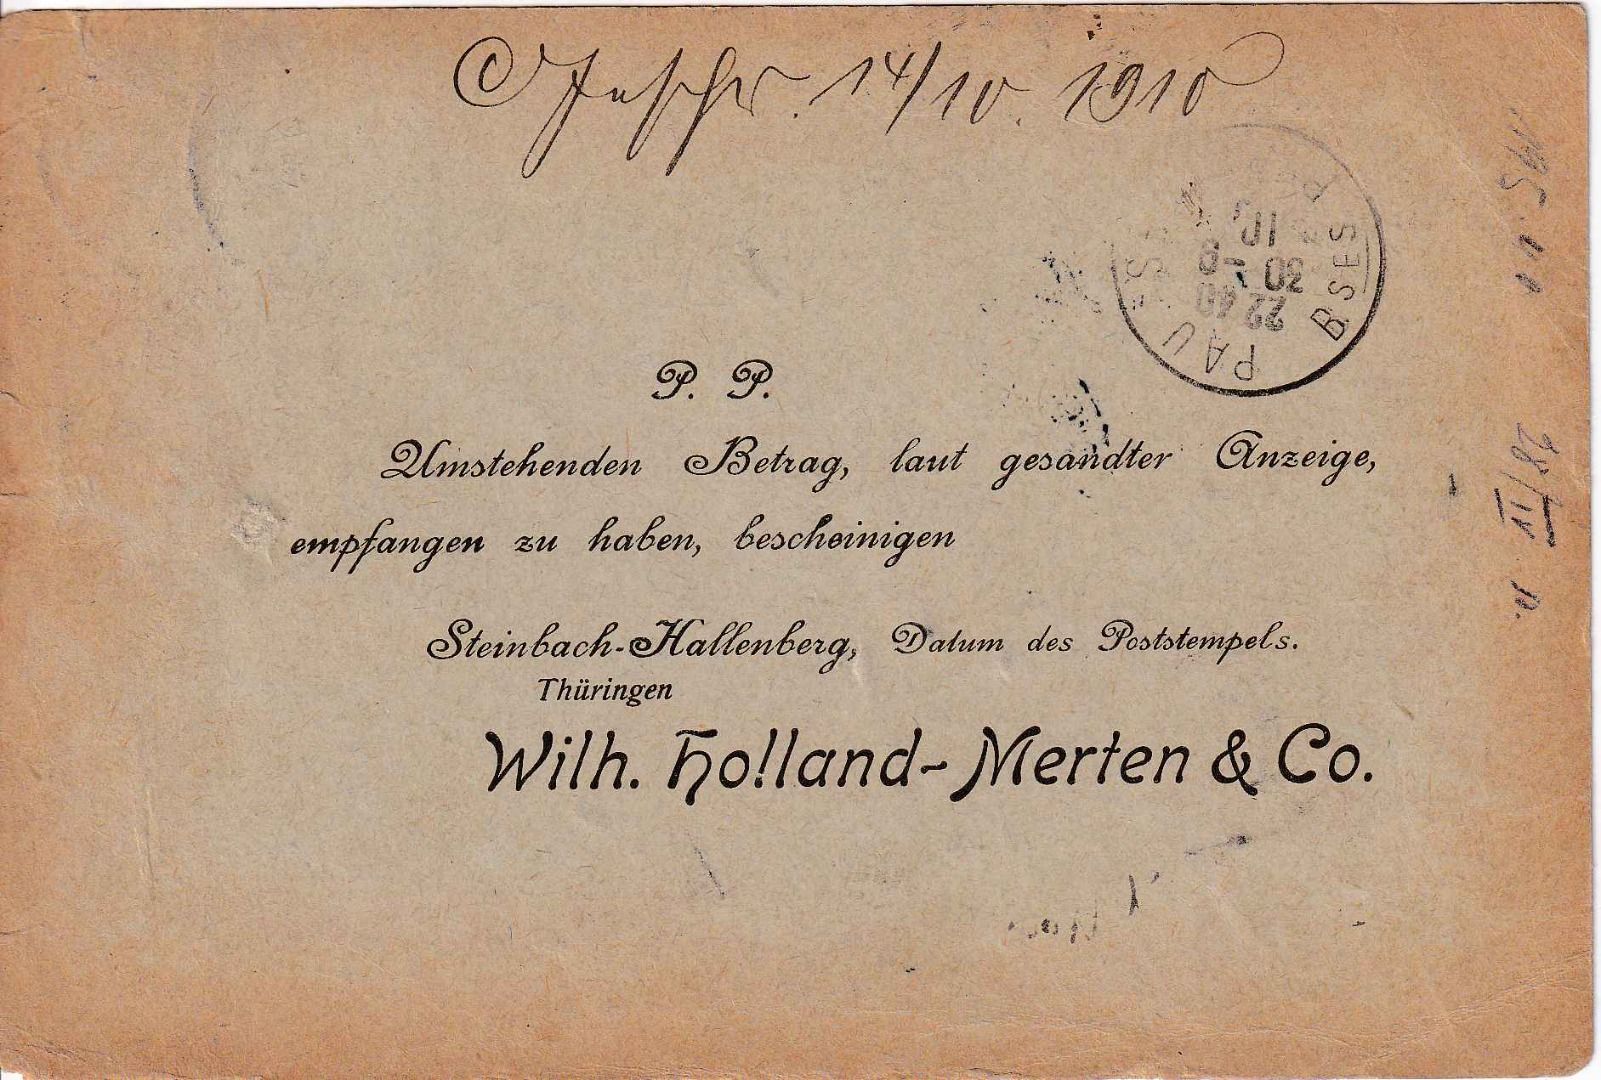 14/10. 1910
PAU
BSES PYR
22 40
30 - 9
10
P. P.
Umstehenden Betrag, laut gesandter Anzeige,
empfangen zu haben, bescheinigen
Steinbach-Hallenberg, Datum des Poststempels.
Thüringen
Wilh. Holland-Merten & Co.
28/II